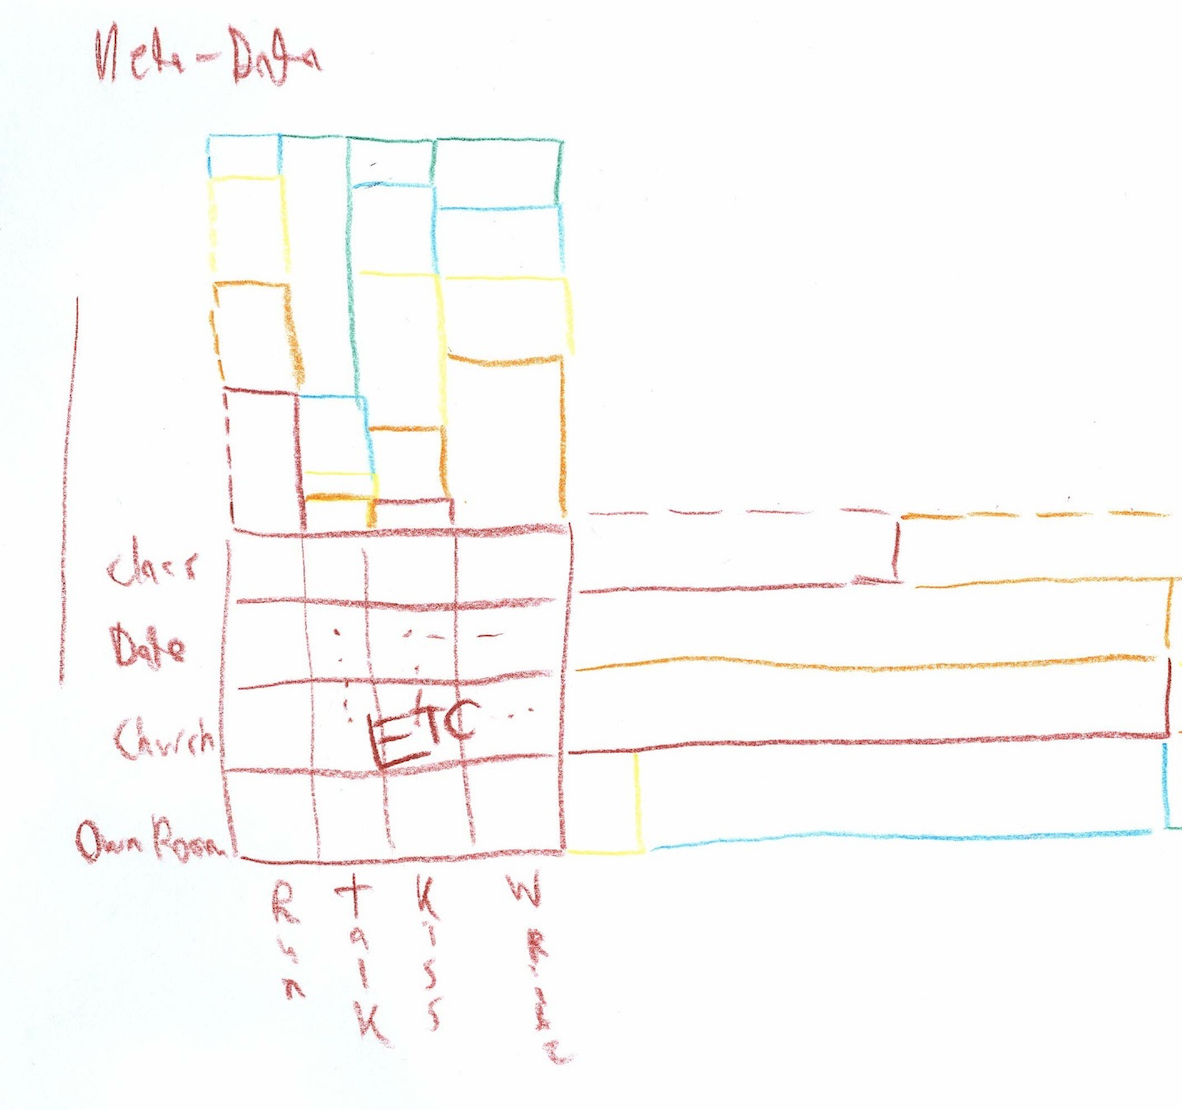 Meta-Data
Class
Date
Church
ETC
Own Room
Run
Talk
Kiss
Write